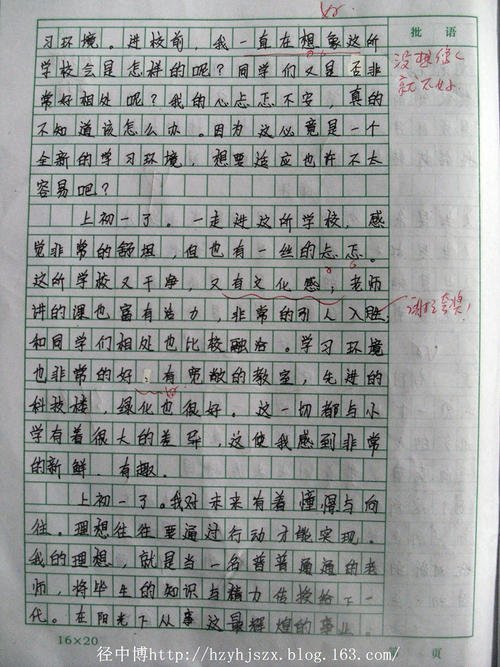 批 语
习环境。进校前，我一直在想象这所
学校会是怎样的呢？同学们又是否非
常好相处呢？我的心忐忑不安，真的
不知道该怎么办。因为这必竟是一个
全新的学习环境，想要适应也许不太
容易吧？
上初一了。一走进这所学校，感
觉非常的舒坦，但也有一丝的忐忑。
这所学校又干净，又有文化感；老师
讲的课也富有活力，非常的引人入胜，
和同学们相处也比较融洽。学习环境
也非常的好，有宽敞的教室，先进的
科技楼，绿化也很好。这一切都与小
学有着很大的差异，这使我感到非常
的新鲜，有趣。
上初一了。我对未来有着憧憬与向
往。理想往往要通过行动才能实现。
我的理想，就是当一名普普通通的老
师，将毕生的知识与精力传授给下一
代。在阳光下从事这最辉煌的事业。
没想像
就不好
谢谢夸奖！
16×20
页
径中博http://hzyhjszx.blog.163.com/